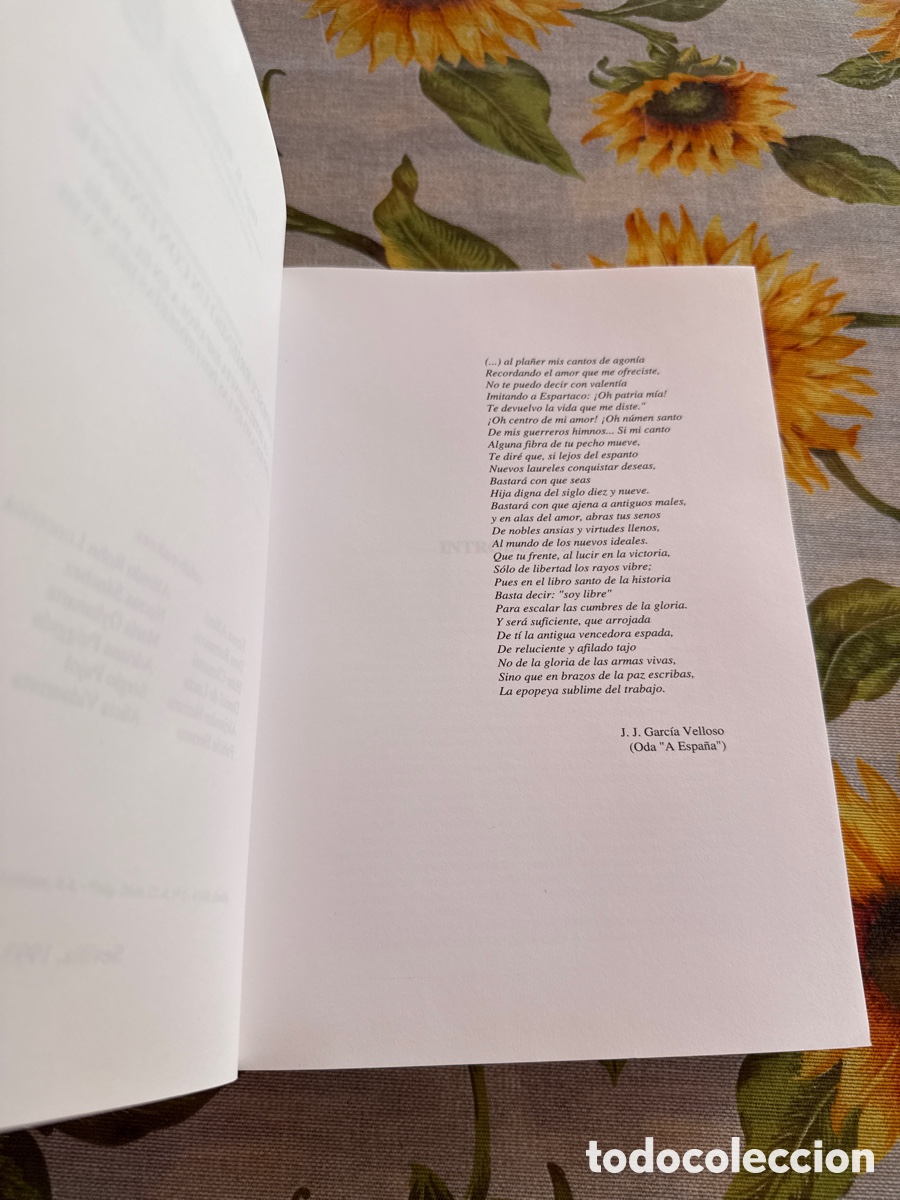 (...) al plañer mis cantos de agonía
Recordando el amor que me ofreciste,
No te puedo decir con valentía
Imitando a Espartaco: ¡Oh patria mía!
Te devuelvo la vida que me diste."
¡Oh centro de mi amor! ¡Oh númen santo
De mis guerreros himnos... Si mi canto
Alguna fibra de tu pecho mueve,
Te diré que, si lejos del espanto
Nuevos laureles conquistar deseas,
Bastará con que seas
Hija digna del siglo diez y nueve.
Bastará con que ajena a antiguos males,
y en alas del amor, abras tus senos
De nobles ansias y virtudes llenos,
Al mundo de los nuevos ideales.
Que tu frente, al lucir en la victoria,
Sólo de libertad los rayos vibre;
Pues en el libro santo de la historia
Basta decir: "soy libre"
Para escalar las cumbres de la gloria.
Y será suficiente, que arrojada
De tí la antigua vencedora espada,
De reluciente y afilado tajo
No de la gloria de las armas vivas,
Sino que en brazos de la paz escribas,
La epopeya sublime del trabajo.
J. J. García Velloso
(Oda "A España")
todocoleccion